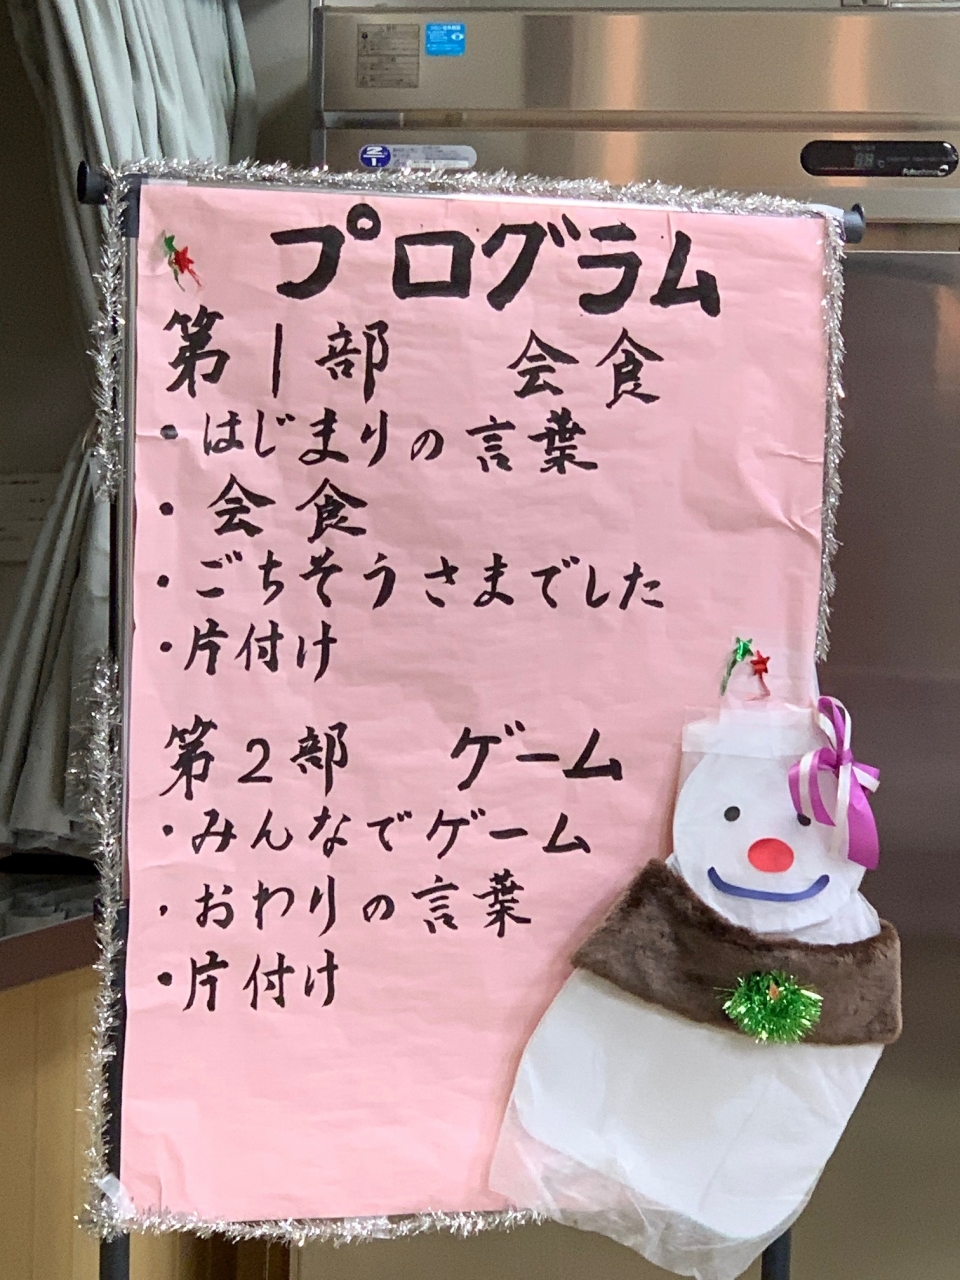 プログラム
第1部 会食
・はじまりの言葉
・会食
・ごちそうさまでした
・片付け
第2部 ゲーム
・みんなでゲーム
・おわりの言葉
・片付け